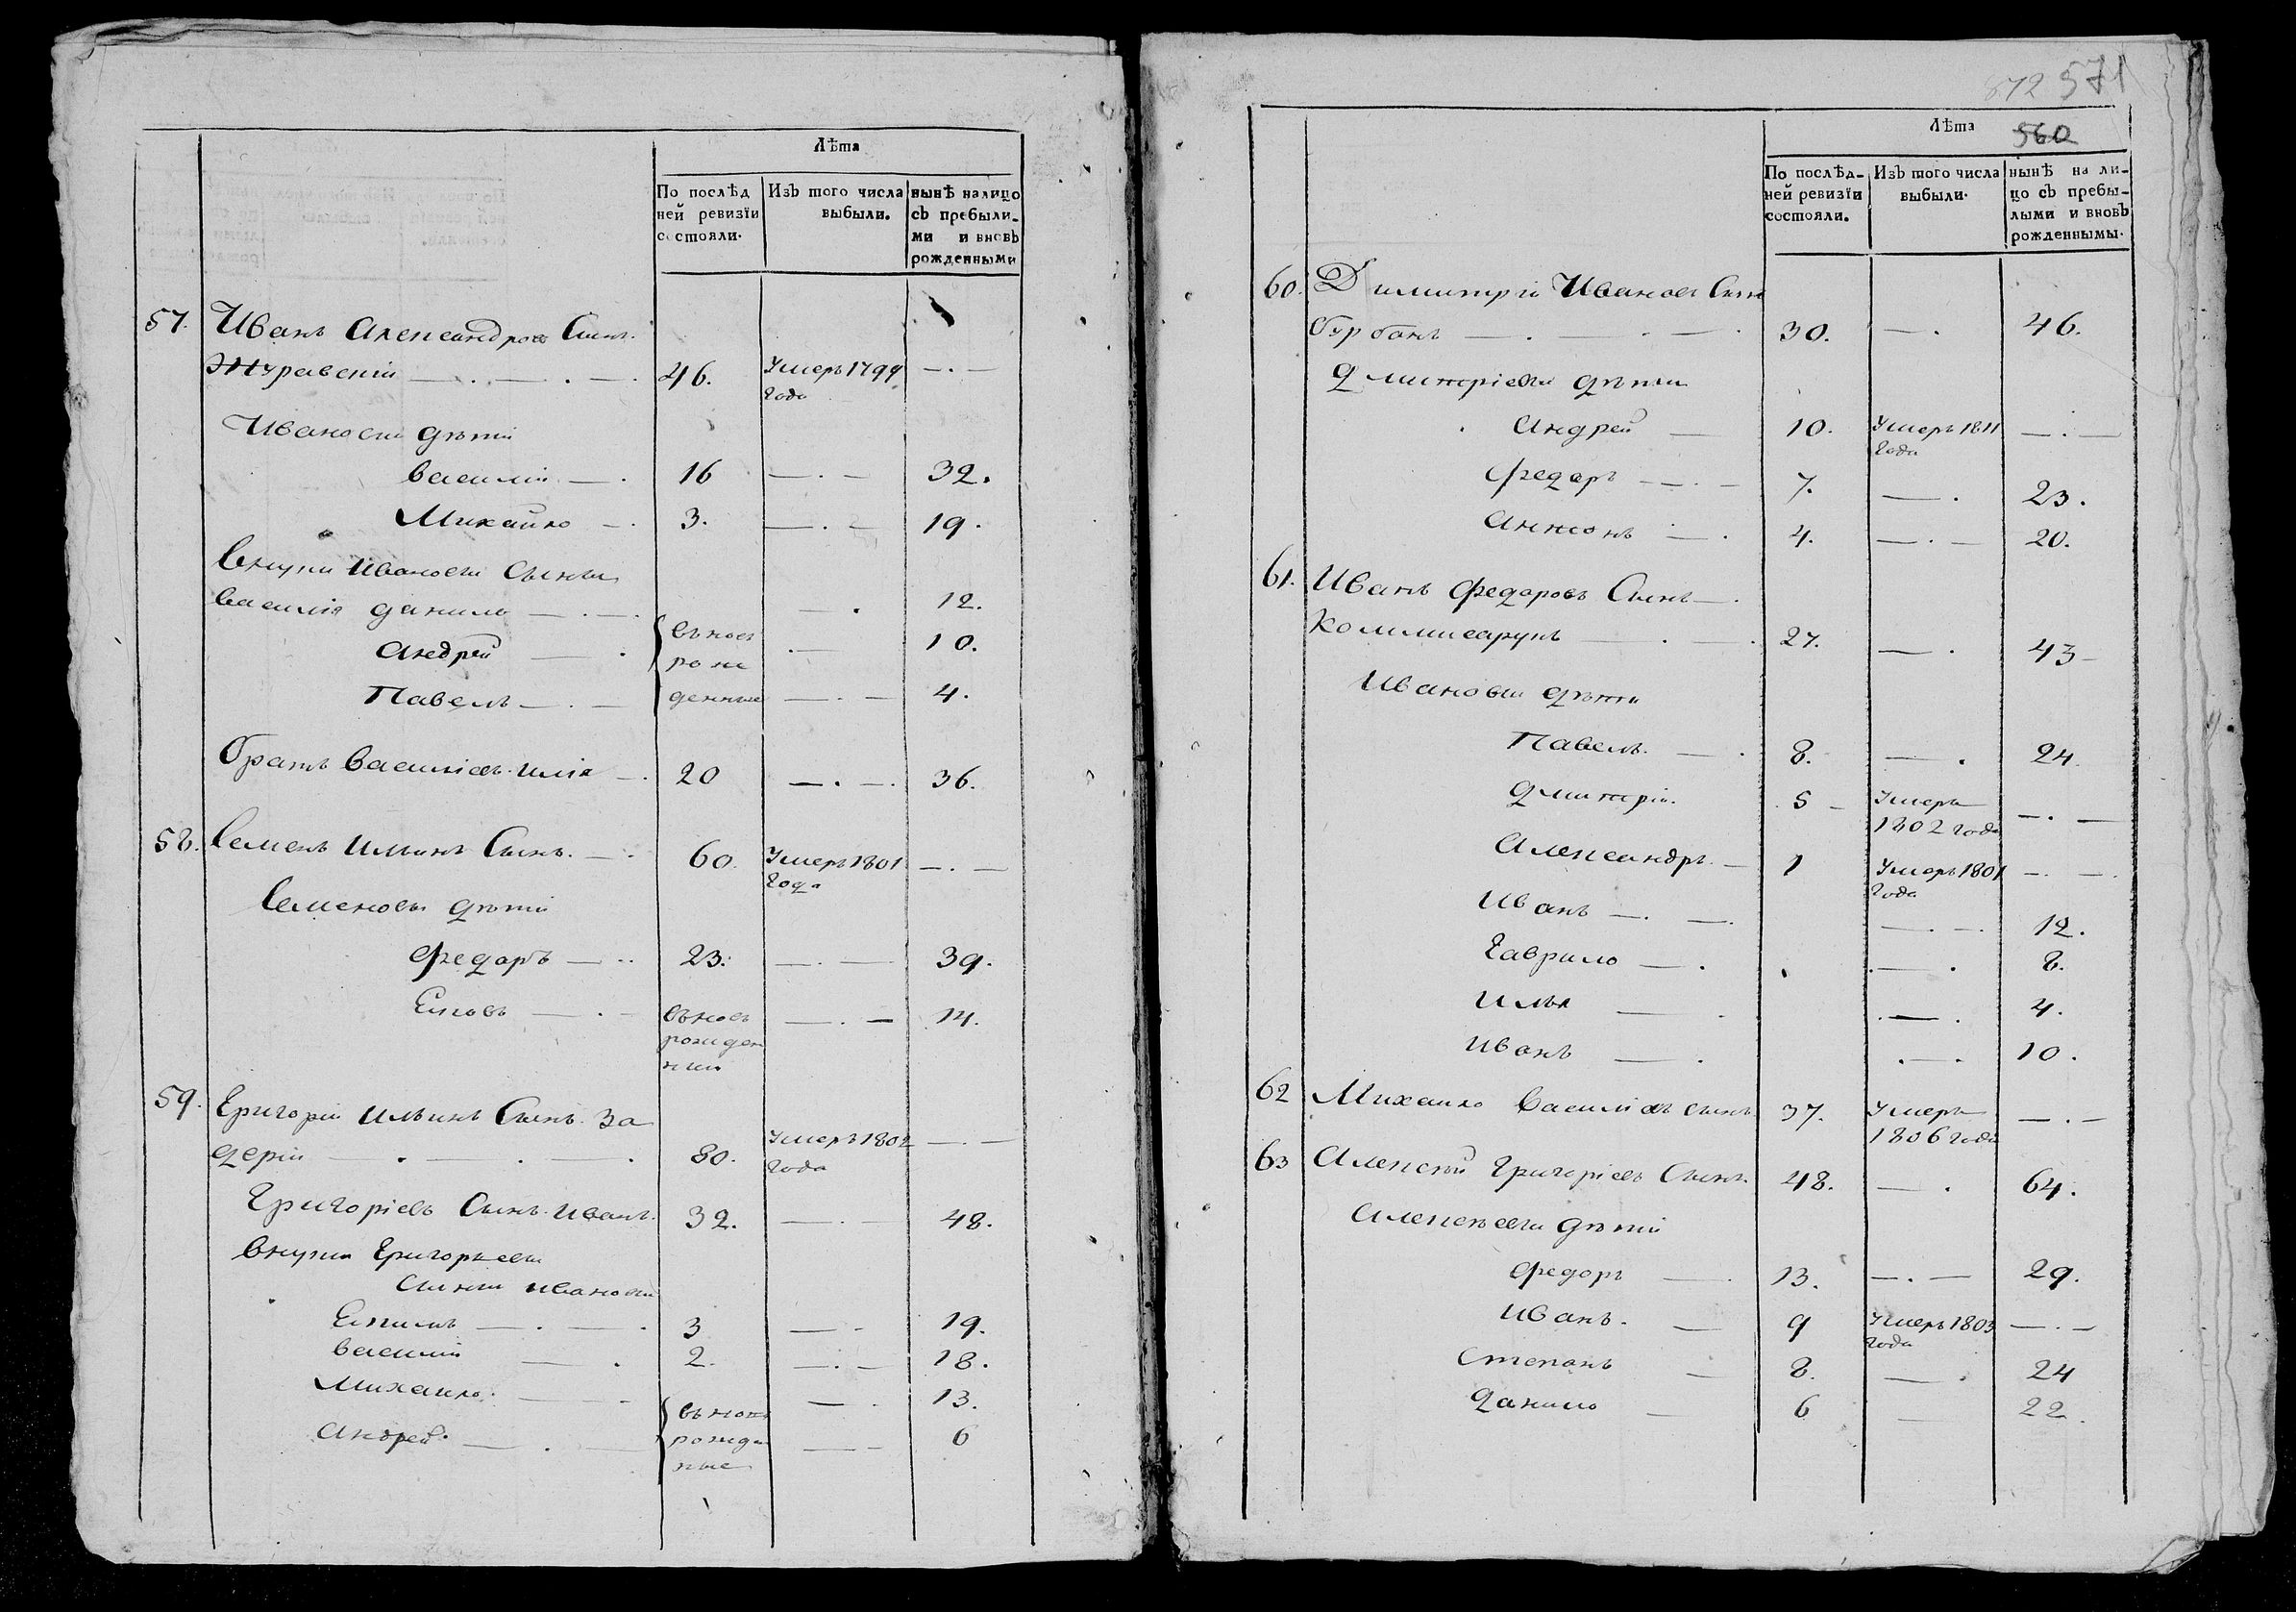 Лѣта
По послѣд ней ревизїи состояли. Изъ того числа выбыли. нынѣ налицо съ пребыли- ми и вновь рожденными
57. Иванъ Александровъ Сынъ.
Журавскій — . — . — . 46. Умеръ 1799 года — . —
Ивановы дѣти
Василій — . 16 — . — 32.
Михайло — . 3. — . — 19.
Внуки Ивановы Сыны
Василія Данило — . — . — . 12.
Андрей — . вновь . — 10.
рож
Павелъ — . — денные — . — 4.
Братъ Васильевъ Илія — . 20 — . — . 36.
58. Семенъ Ильинъ Сынъ. — . 60. Умеръ 1801 года — . —
Семеновы дѣти
Федаръ — . . 23. — . — 39.
Яковъ — . — вновь рожден ный — . — 14.
59. Григорій Ильинъ Сынъ. За
дерій — . — . — . 80. Умеръ 1802 года — . —
Григоріевъ Сынъ. Иванъ. 32. — . — 48.
Внуки Григорьевы
Сыны Ивановы
Екимъ — . — . 3 — . 19.
Василій — . 2. — . — 18.
Михайло. — . — вновь — . 13.
Андрей. — . — рожде ные — . — 6
872 571
Лѣта 560
По послѣд- ней ревизїи состояли. Изъ того числа выбыли. нынѣ на ли- цо съ пребы- лыми и вновь рожденнымы.
60. Димитрій Ивановъ Сынъ
Бурбанъ — . — . — . 30. — . 46.
Дмитріевы дѣти
Андрей — 10. Умеръ 1811 года — . —
Федаръ — . — 7. — . 23.
Антонъ — . 4. — . — 20.
61. Иванъ Федаровъ Сынъ — .
Коммисарукъ — . — . 27. — . 43 —
Ивановы дѣти
Павелъ. — . 8. — . 24.
Дмитрій. 5 — Умеръ 1802 года — . —
Александръ. — 1 Умеръ 1801 года — . — .
Иванъ — . — . — . — . 12.
Гаврило — . . — . 8.
Илья — . . — . 4.
Иванъ — . . — . 10.
62 Михайло Васильевъ сынъ 37. Умеръ 1806 года — . —
63 Алексѣй Григоріевъ Сынъ. 48. — . 64.
Алексѣевы дѣти
Федоръ — . 13. — . — 29.
Иванъ. — 9 Умеръ 1803 года — . —
Степанъ — 8. — . 24
Данило — 6 — 22.